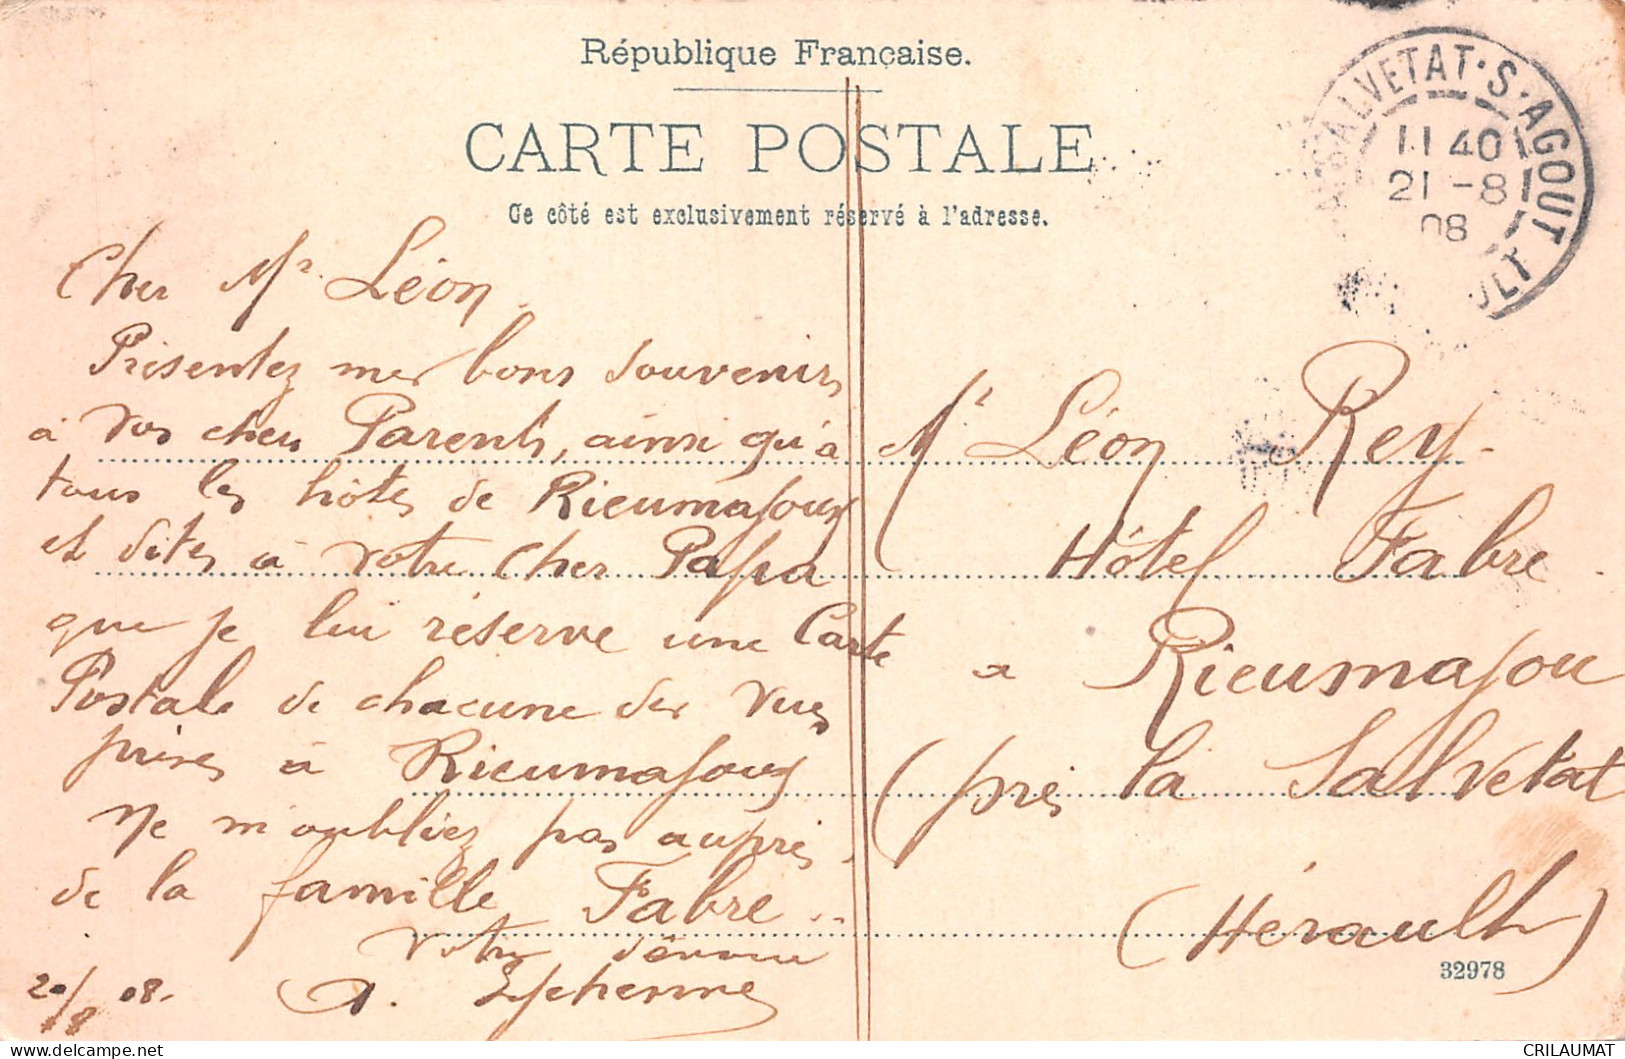 République Française.
CARTE POSTALE
Ce côté est exclusivement réservé à l'adresse.
SALVETAT·S·AGOUT
11 40
21 -8
08
ULT
Cher Mr Léon
Présentez mes bons souvenirs
à vos chers Parents, ainsi qu'à
tous les hôtes de Rieumajoux
et dites à votre cher Papa
que je lui réserve une Carte
Postale de chacune des vues
prises à Rieumajoux
Ne m'oubliez pas auprès
de la famille Fabre..
Votre dévoué
20/8 08.
Mr Léon Rey
Hôtel Fabre
à Rieumajou
(près la Salvetat
(Hérault)
32978
CRILAUMAT